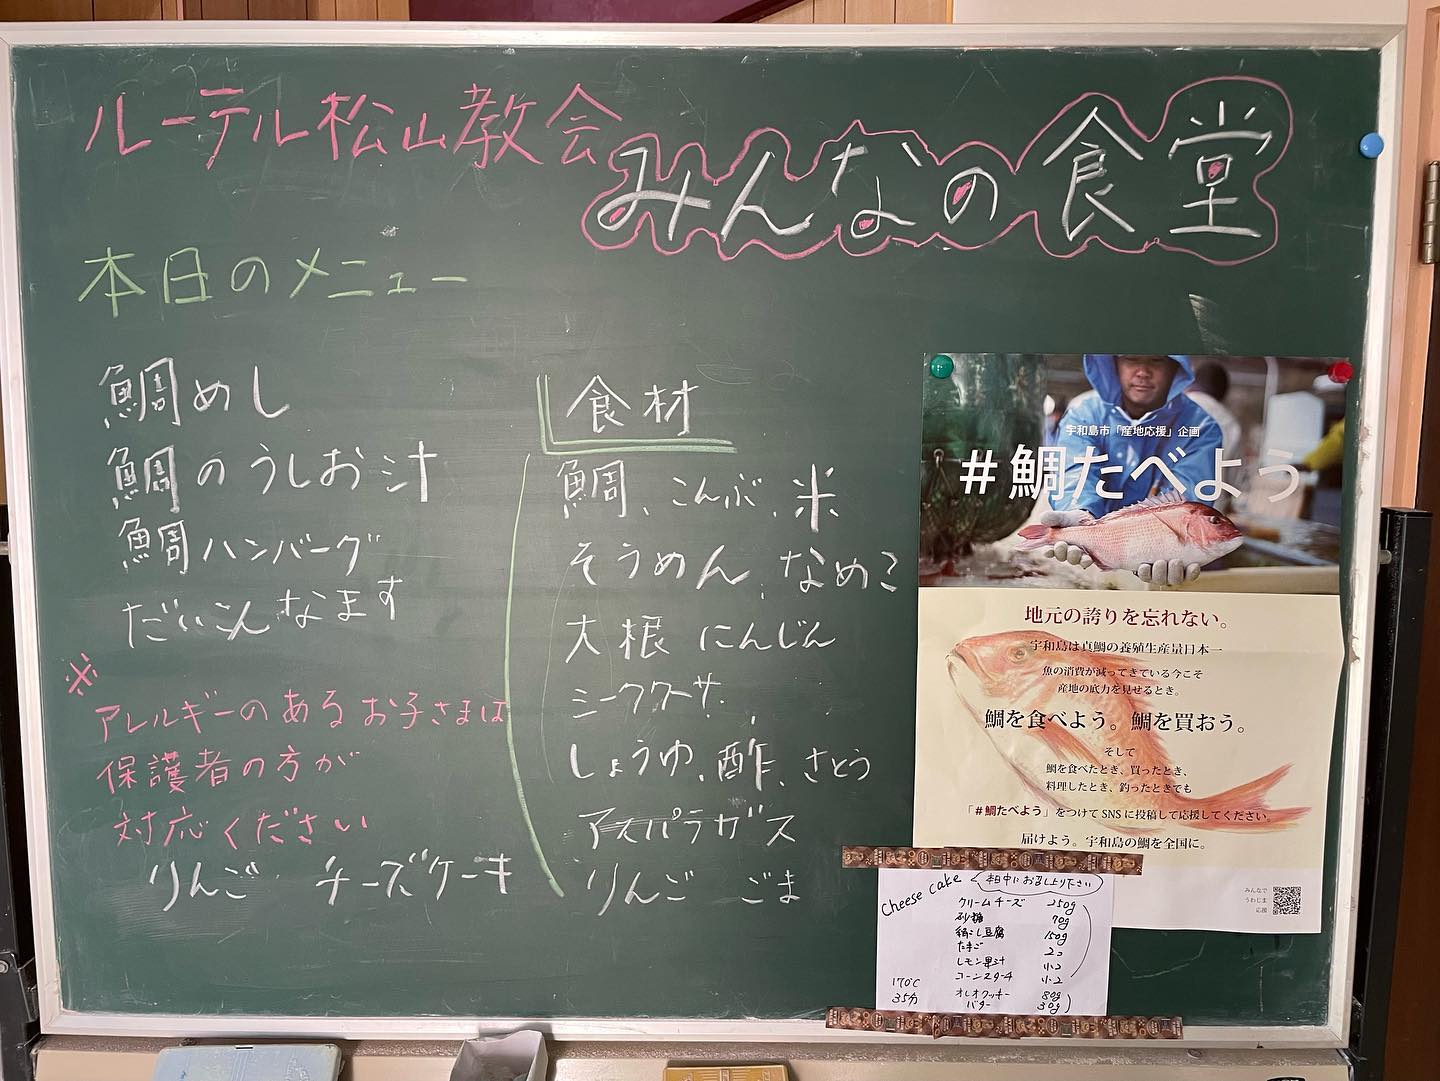 ルーテル松山教会
みんなの食堂
本日のメニュー
鯛めし
鯛のうしお汁
鯛ハンバーグ
だいこんなます
※
アレルギーのあるお子さまは
保護者の方が
対応ください
りんご チーズケーキ
食材
鯛、こんぶ、米
そうめん、なめこ
大根 にんじん
シークワーサ
しょうゆ、酢、さとう
アスパラガス
りんご ごま
宇和島市「産地応援」企画
#鯛たべよう
地元の誇りを忘れない。
宇和島は真鯛の養殖生産量日本一
魚の消費が減ってきている今こそ
産地の底力を見せるとき。
鯛を食べよう。鯛を買おう。
そして
鯛を食べたとき、買ったとき、
料理したとき、釣ったときでも
「#鯛たべよう」をつけてSNSに投稿して応援してください。
届けよう。宇和島の鯛を全国に。
みんなで
うわじま
応援
Cheese cake 本日中にお召し上り下さい
クリームチーズ 250g
砂糖 70g
絹ごし豆腐 150g
たまご 2コ
レモン果汁 小2
コーンスターチ 小2
170℃
35分
オレオクッキー 80g
バター 30g